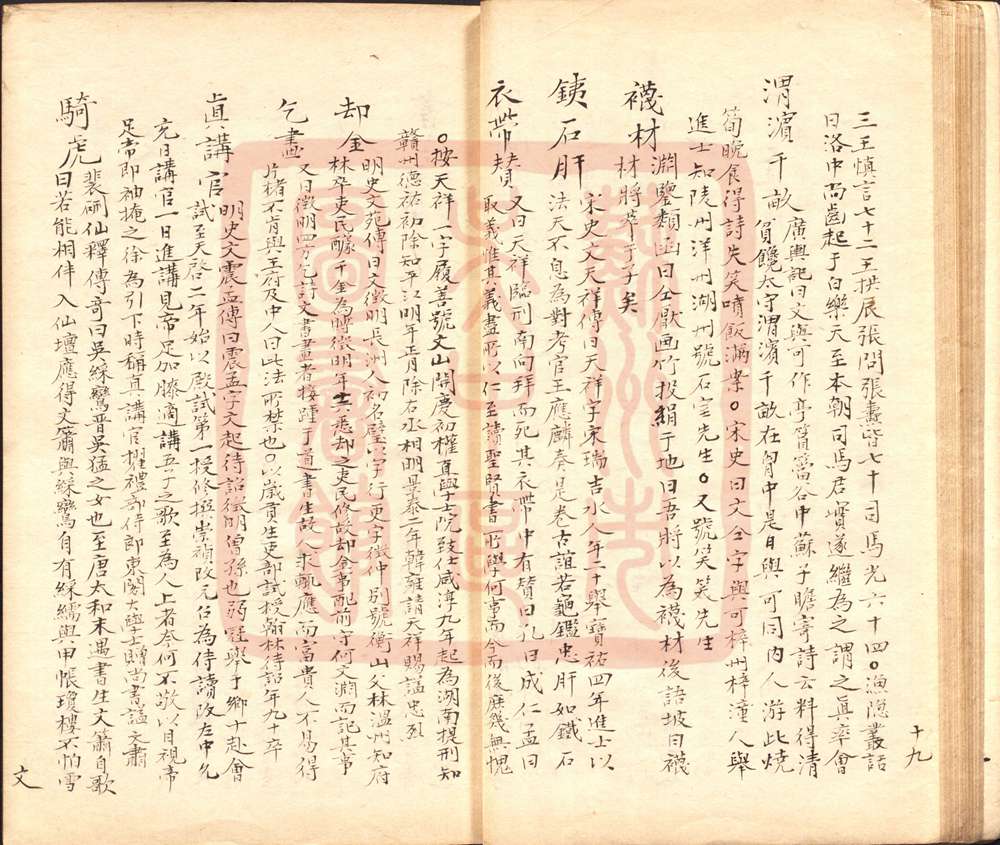 十九
三王慎言七十二王拱辰張問張燾皆七十司馬光六十四○漁隱叢話
曰洛中尚齒起于白樂天至本朝司馬君實遂繼為之謂之真率會
渭濱千畝 廣輿記曰文與可作亭篔簹谷中蘇子瞻寄詩云料得清
貧饞太守渭濱千畝在胷中是日與可同內人游此燒
筍晚食得詩失笑噴飯滿案○宋史曰文仝字與可梓州梓潼人舉
進士知陵州洋州湖州號石室先生○又號笑笑先生
襪材 淵鑒類函曰仝厭画竹投絹于地曰吾將以為襪材後語坡曰襪
材將萃于子矣
鉄石肝 宋史文天祥傳曰天祥字宋瑞吉水人年二十舉寶祐四年進士以
法天不息為對考官王應麟奏是卷古誼若龜鑑忠肝如鐵石
衣帶賛 又曰天祥臨刑南向拜而死其衣帶中有贊曰孔曰成仁孟曰
取義惟其義盡所以仁至讀聖賢書所學何事而今而後庶幾無愧
○按天祥一字履善號文山開慶初權直學士院致仕咸淳九年起為湖南提刑知
贛州德祐初除知平江明年正月除右丞相明景泰二年韓雍請天祥賜謚忠烈
却金 明史文苑傳曰文徵明長洲人初名璧以字行更字徵仲別號衡山父林溫州知府
林卒吏民醵千金為賻徵明年十六悉却之吏民修故却金亭配前守何文淵而記其事
乞畫 又曰徵明四方乞詩文書畫者接踵于道書生故人求輒應而富貴人不易得
片楮不肯與王府及中人曰此法所禁也○以歲貢生吏部試授翰林待詔年九十卒
眞講官 明史文震孟傳曰震孟字文起待詔徵明曾孫也弱冠舉于鄉十赴會
試至天啓二年始以殿試第一授修撰崇禎改元召為侍讀改左中允
充日講官一日進講見帝足加膝適講五子之歌至為人上者奈何不敬以目視帝
足帝即袖掩之徐為引下時稱真講官擢禮部侍郎東閣大學士贈尚書謚文肅
騎虎 裴硎仙釋傳奇曰吳綵鸞晉吳猛之女也至唐太和末遇書生文簫自歌
曰若能相伴入仙壇應得文簫與綵鸞自有綵繻與甲帳瓊樓不怕雪
文